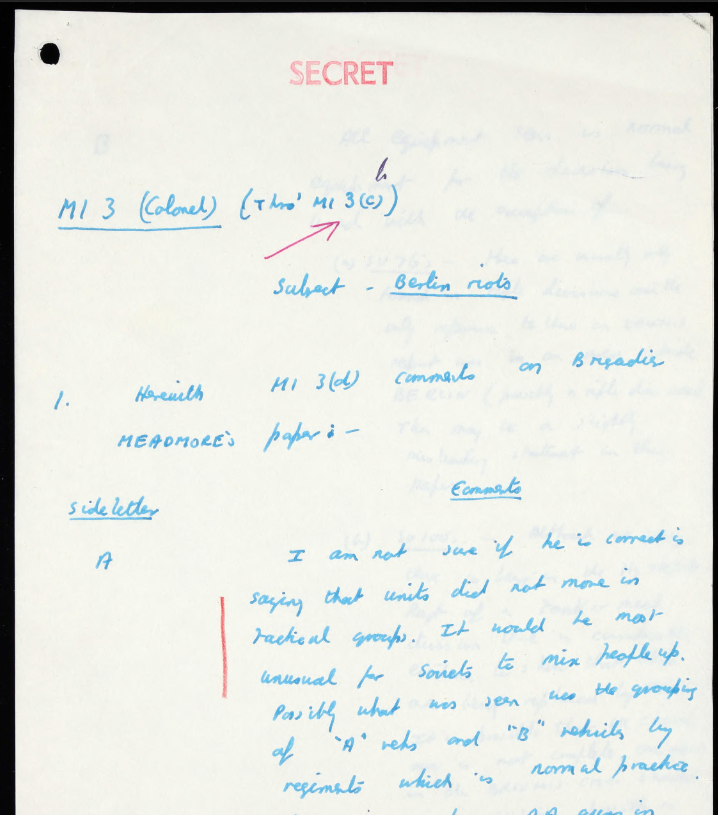 SECRET
MI 3 (Colonel) (Thro' MI 3(C))
Subject - Berlin riots
1. Herewith MI 3(d) comments on Brigadier
MEADMORE'S paper :-
Side letter
Comments
A
I am not sure if he is correct is
saying that units did not move in
tactical groups. It would be most
unusual for Soviets to mix people up.
Possibly what was seen was the grouping
of "A" vehs and "B" vehicles by
regiments which is normal practice.